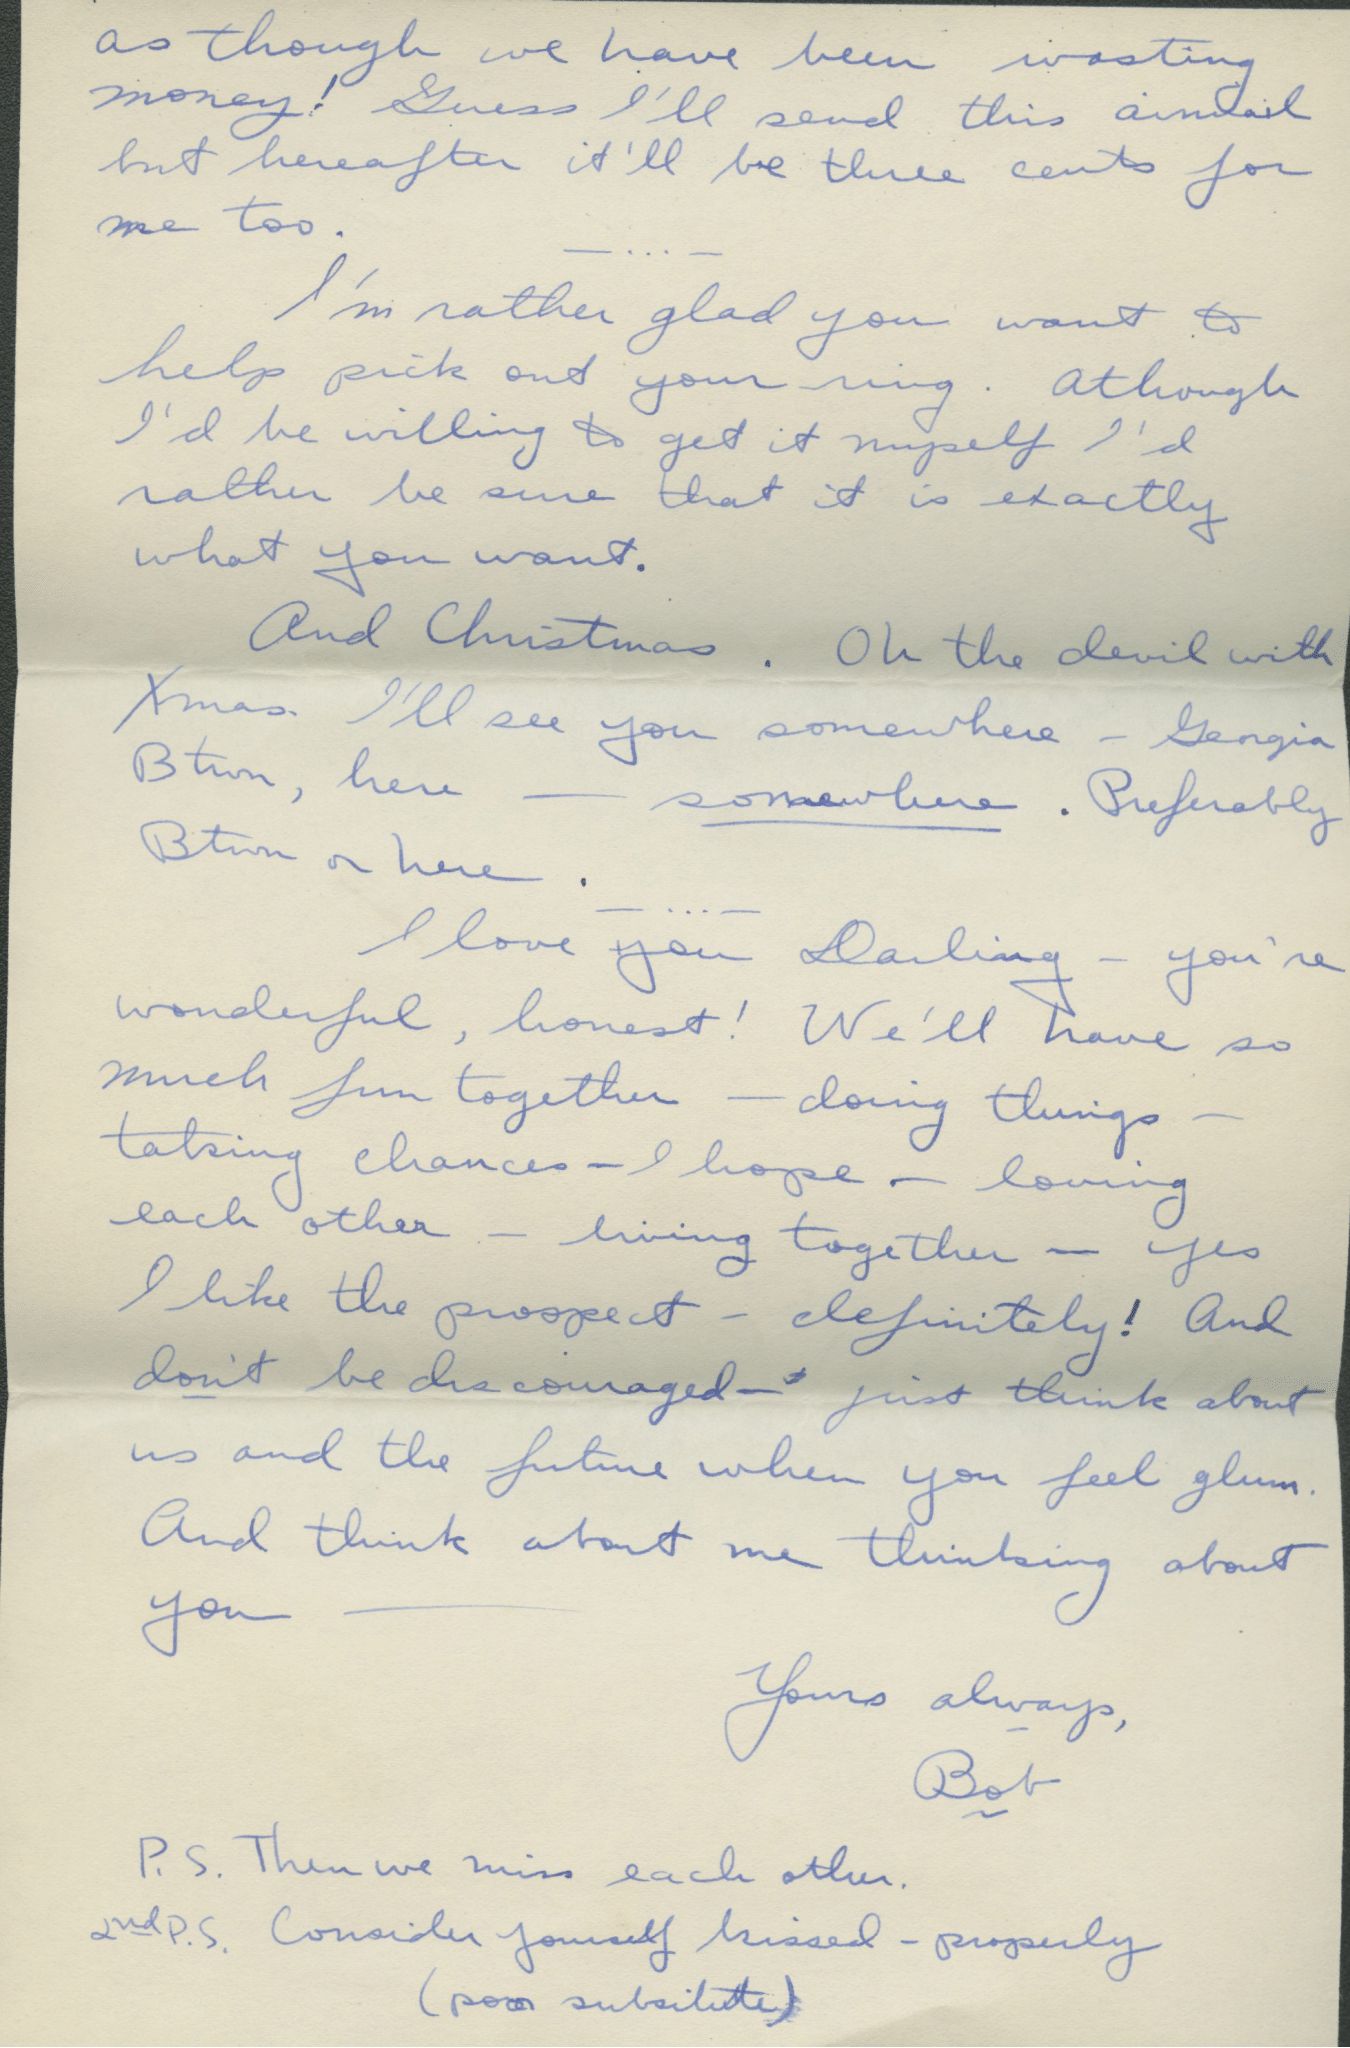 as though we have been wasting
money! Guess I'll send this airmail
but hereafter it'll be three cents for
me too.
— ... —
I'm rather glad you want to
help pick out your ring. Athough
I'd be willing to get it myself I'd
rather be sure that it is exactly
what you want.
And Christmas. Oh the devil with
Xmas. I'll see you somewhere – Georgia
Btwn, here — somewhere. Preferably
Btwn or here.
— ... —
I love you Darling – you're
wonderful, honest! We'll have so
much fun together – doing things –
taking chances – I hope – loving
each other – living together – yes
I like the prospect – definitely! And
don't be discouraged – just think about
us and the future when you feel glum.
And think about me thinking about
you —
Yours always,
Bob
P.S. Then we miss each other.
2nd P.S. Consider yourself kissed – properly
(poor subsitute)